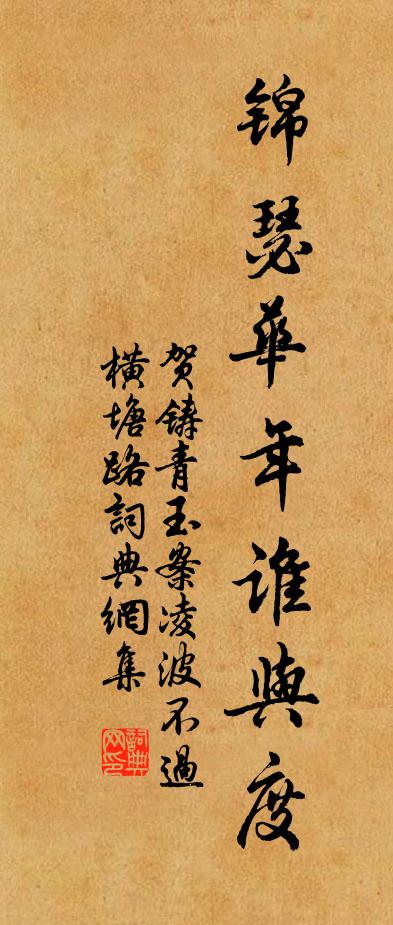 锦瑟華年誰與度
贺鑄青玉案凌波不過
橫塘路詞典網集
詞典网印